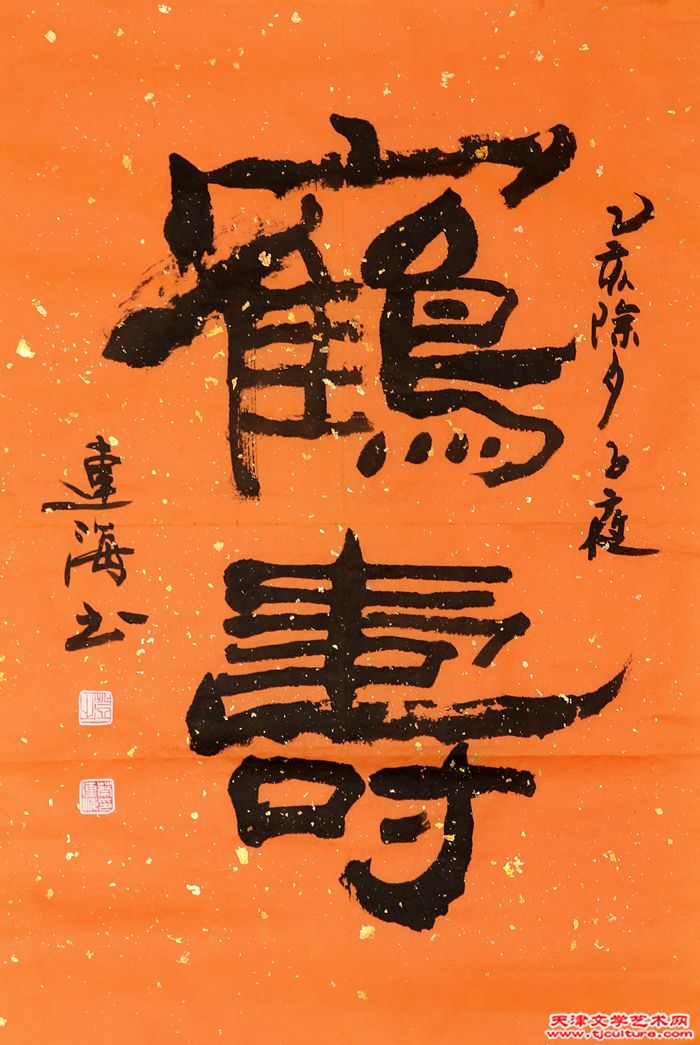 乙亥除夕子夜
鶴壽
連海书
天津文学艺术网
www.tjculture.com